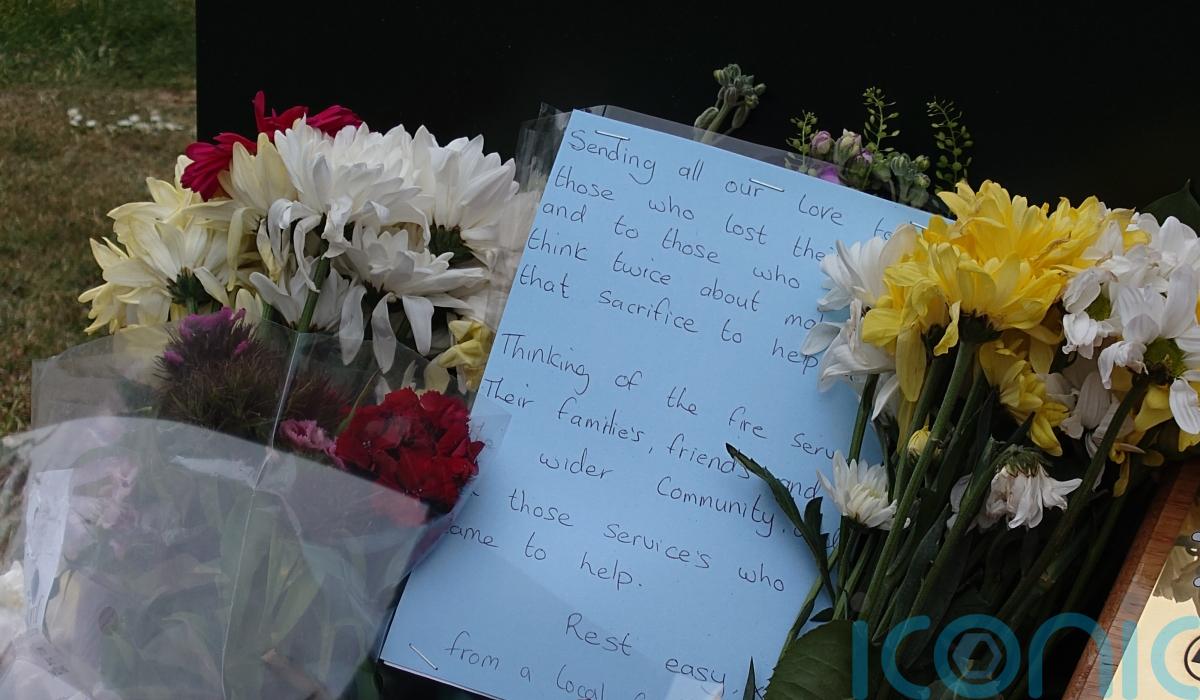 Sending all our Love to
those who lost the
and to those who
think twice about
that sacrifice to help
Thinking of the fire
Their families, friends and
wider Community.
those service's who
came to help.
Rest easy
from a Local
iconic